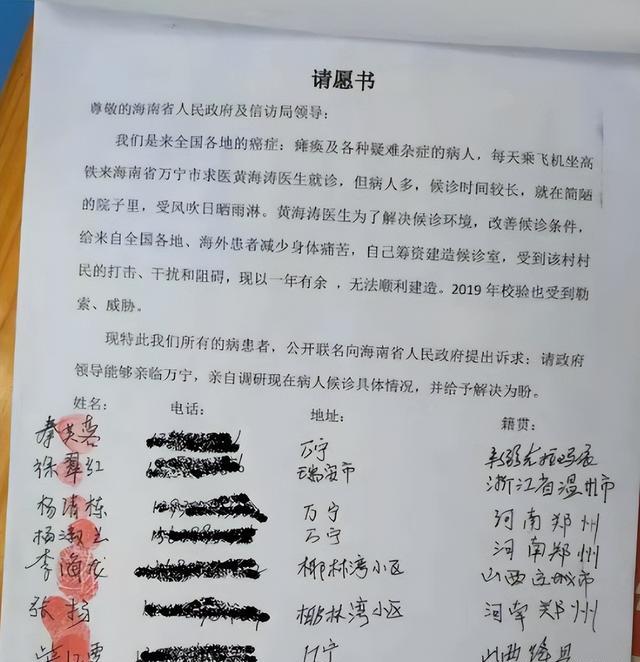 请愿书
尊敬的海南省人民政府及信访局领导:
我们是来全国各地的癌症:瘫痪及各种疑难杂症的病人,每天乘飞机坐高
铁来海南省万宁市求医黄海涛医生就诊,但病人多,候诊时间较长,就在简陋
的院子里,受风吹日晒雨淋。黄海涛医生为了解决候诊环境,改善候诊条件,
给来自全国各地、海外患者减少身体痛苦,自己筹资建造候诊室,受到该村村
民的打击、干扰和阻碍,现以一年有余 ,无法顺利建造。2019年校验也受到勒
索、威胁。
现特此我们所有的病患者,公开联名向海南省人民政府提出诉求:请政府
领导能够亲临万宁,亲自调研现在病人候诊具体情况,并给予解决为盼。
姓名: 电话: 地址: 籍贯:
万宁
徐翠红 瑞安市 浙江省温州市
杨清栋 万宁 河南郑州
杨淑兰 万宁 河南郑州
李海龙 椰林湾小区 山西运城市
张扬 椰林湾小区 河南郑州
万宁 山西绛县